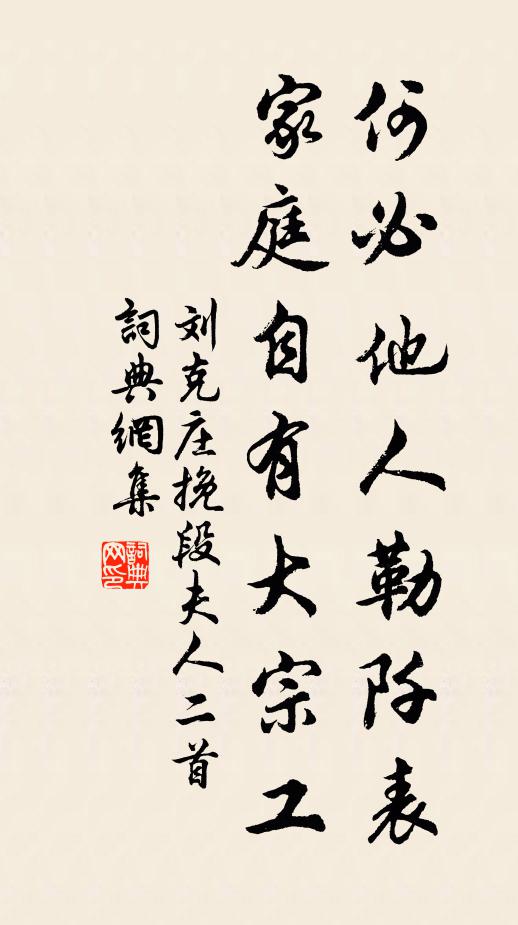 何必他人勒阡表
家庭自有大宗工
刘克庄挽段夫人二首
詞典網集
詞典網印